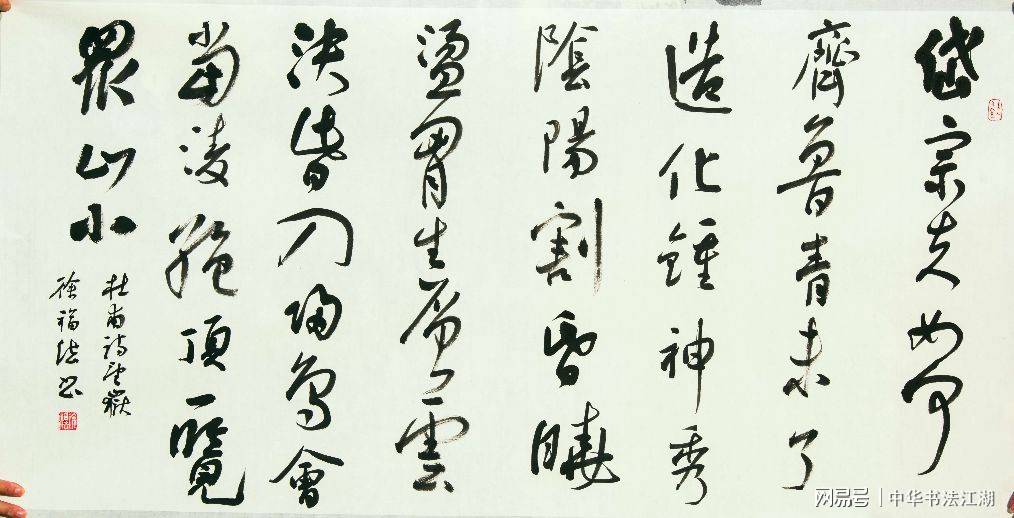 岱宗夫如何
齊魯青未了
造化鍾神秀
陰陽割昏曉
盪胷生層雲
決眥入歸鳥會
當淩絕頂一覽
眾山小
杜甫詩望嶽
徐福 书
网易号 | 中华书法江湖